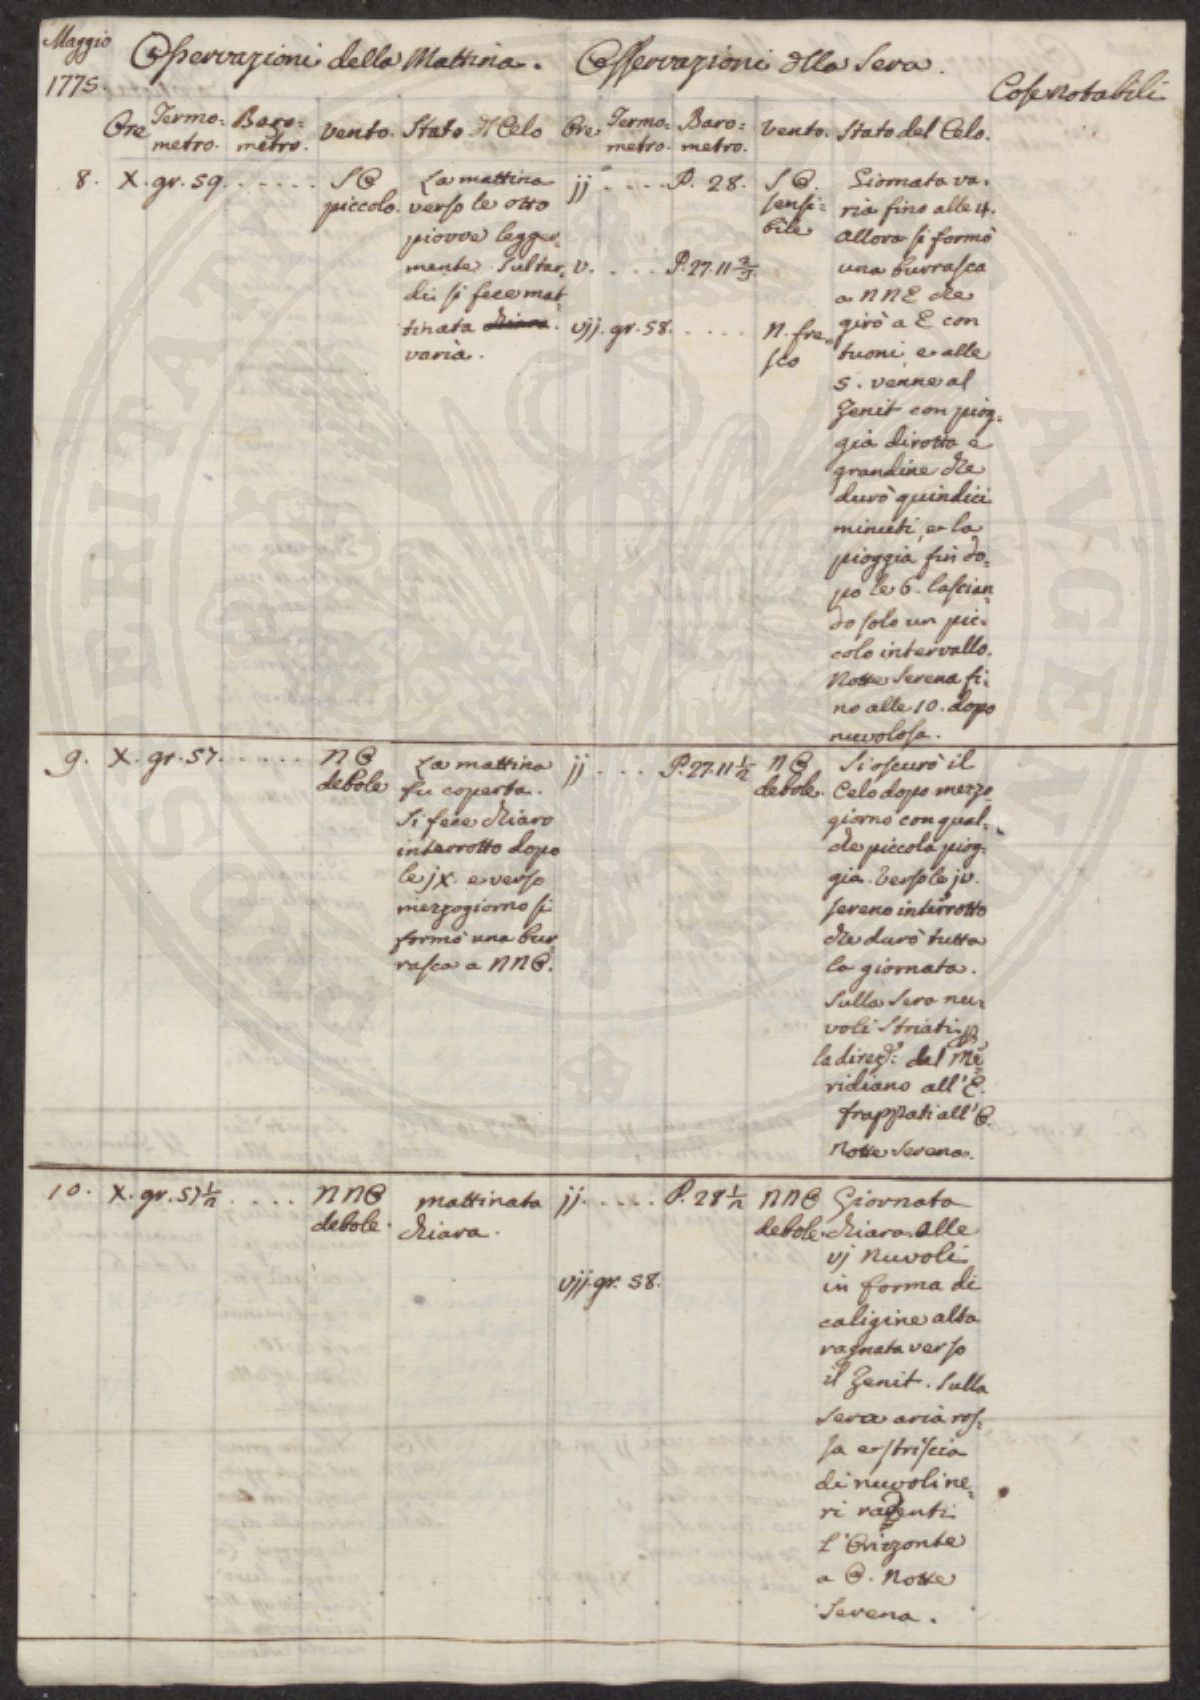 Maggio
1775.
Osservazioni della Mattina. Osservazioni dlla Sera.
Cose notabili
Ore Termo: metro. Baro: metro. Vento. Stato dl Celo
Ore Termo: metro. Baro: metro. Vento. Stato del Celo.
8. X. gr. 59. . . . . . .
S O
piccolo.
La mattina
verso le otto
piovve legger
mente. Sul tar,
di si fece mat
tinata chiara.
varia.
jj . . . . . P. 28.
v. . . . . P. 27. 11 2/3.
vjj. gr. 58. . . . . .
S O.
sensi:
bile
N. fre,
sco
Giornata va.
ria fino alle 4.
allora si formò
una burrasca
a NNE che
girò a E con
tuoni, e alle
5. venne al
Zenit con piog,
gia dirotta e
grandine che
durò quindici
minuti, e la
pioggia fin do,
po le 6. lascian
do solo un pic:
colo intervallo.
Notte Serena fi:
no alle 10. dopo
nuvolosa.
9. X. gr. 57. . . . . .
N O
debole
La mattina
fu coperta.
Si fece chiaro
interrotto dopo
le jX. e verso
mezzogiorno si
formò una bur
rasca a NNO.
jj . . . P. 27. 11 1/2
N O
debole.
Si oscurò il
Celo dopo mezzo
giorno con qual,
che piccola piog,
gia. Verso le jv.
sereno interrotto
che durò tutta
la giornata.
Sulla Sera nu:
voli striati p
la direz.e: del Me
ridiano all'E.
frappati all'O.
Notte Serena.
10. X. gr. 57 1/2 . . . .
NNO
debole.
mattinata
chiara.
jj. . . . . . P. 28 1/2
vjj. gr. 58.
NNO
debole.
Giornata
chiara. alle
vj nuvoli
in forma di
caligine alta
ragnata verso
il Zenit. Sulla
sera aria ros:
sa e striscia
di nuvoli ne,
ri radenti
l'Orizzonte
a O. Notte
Serena.